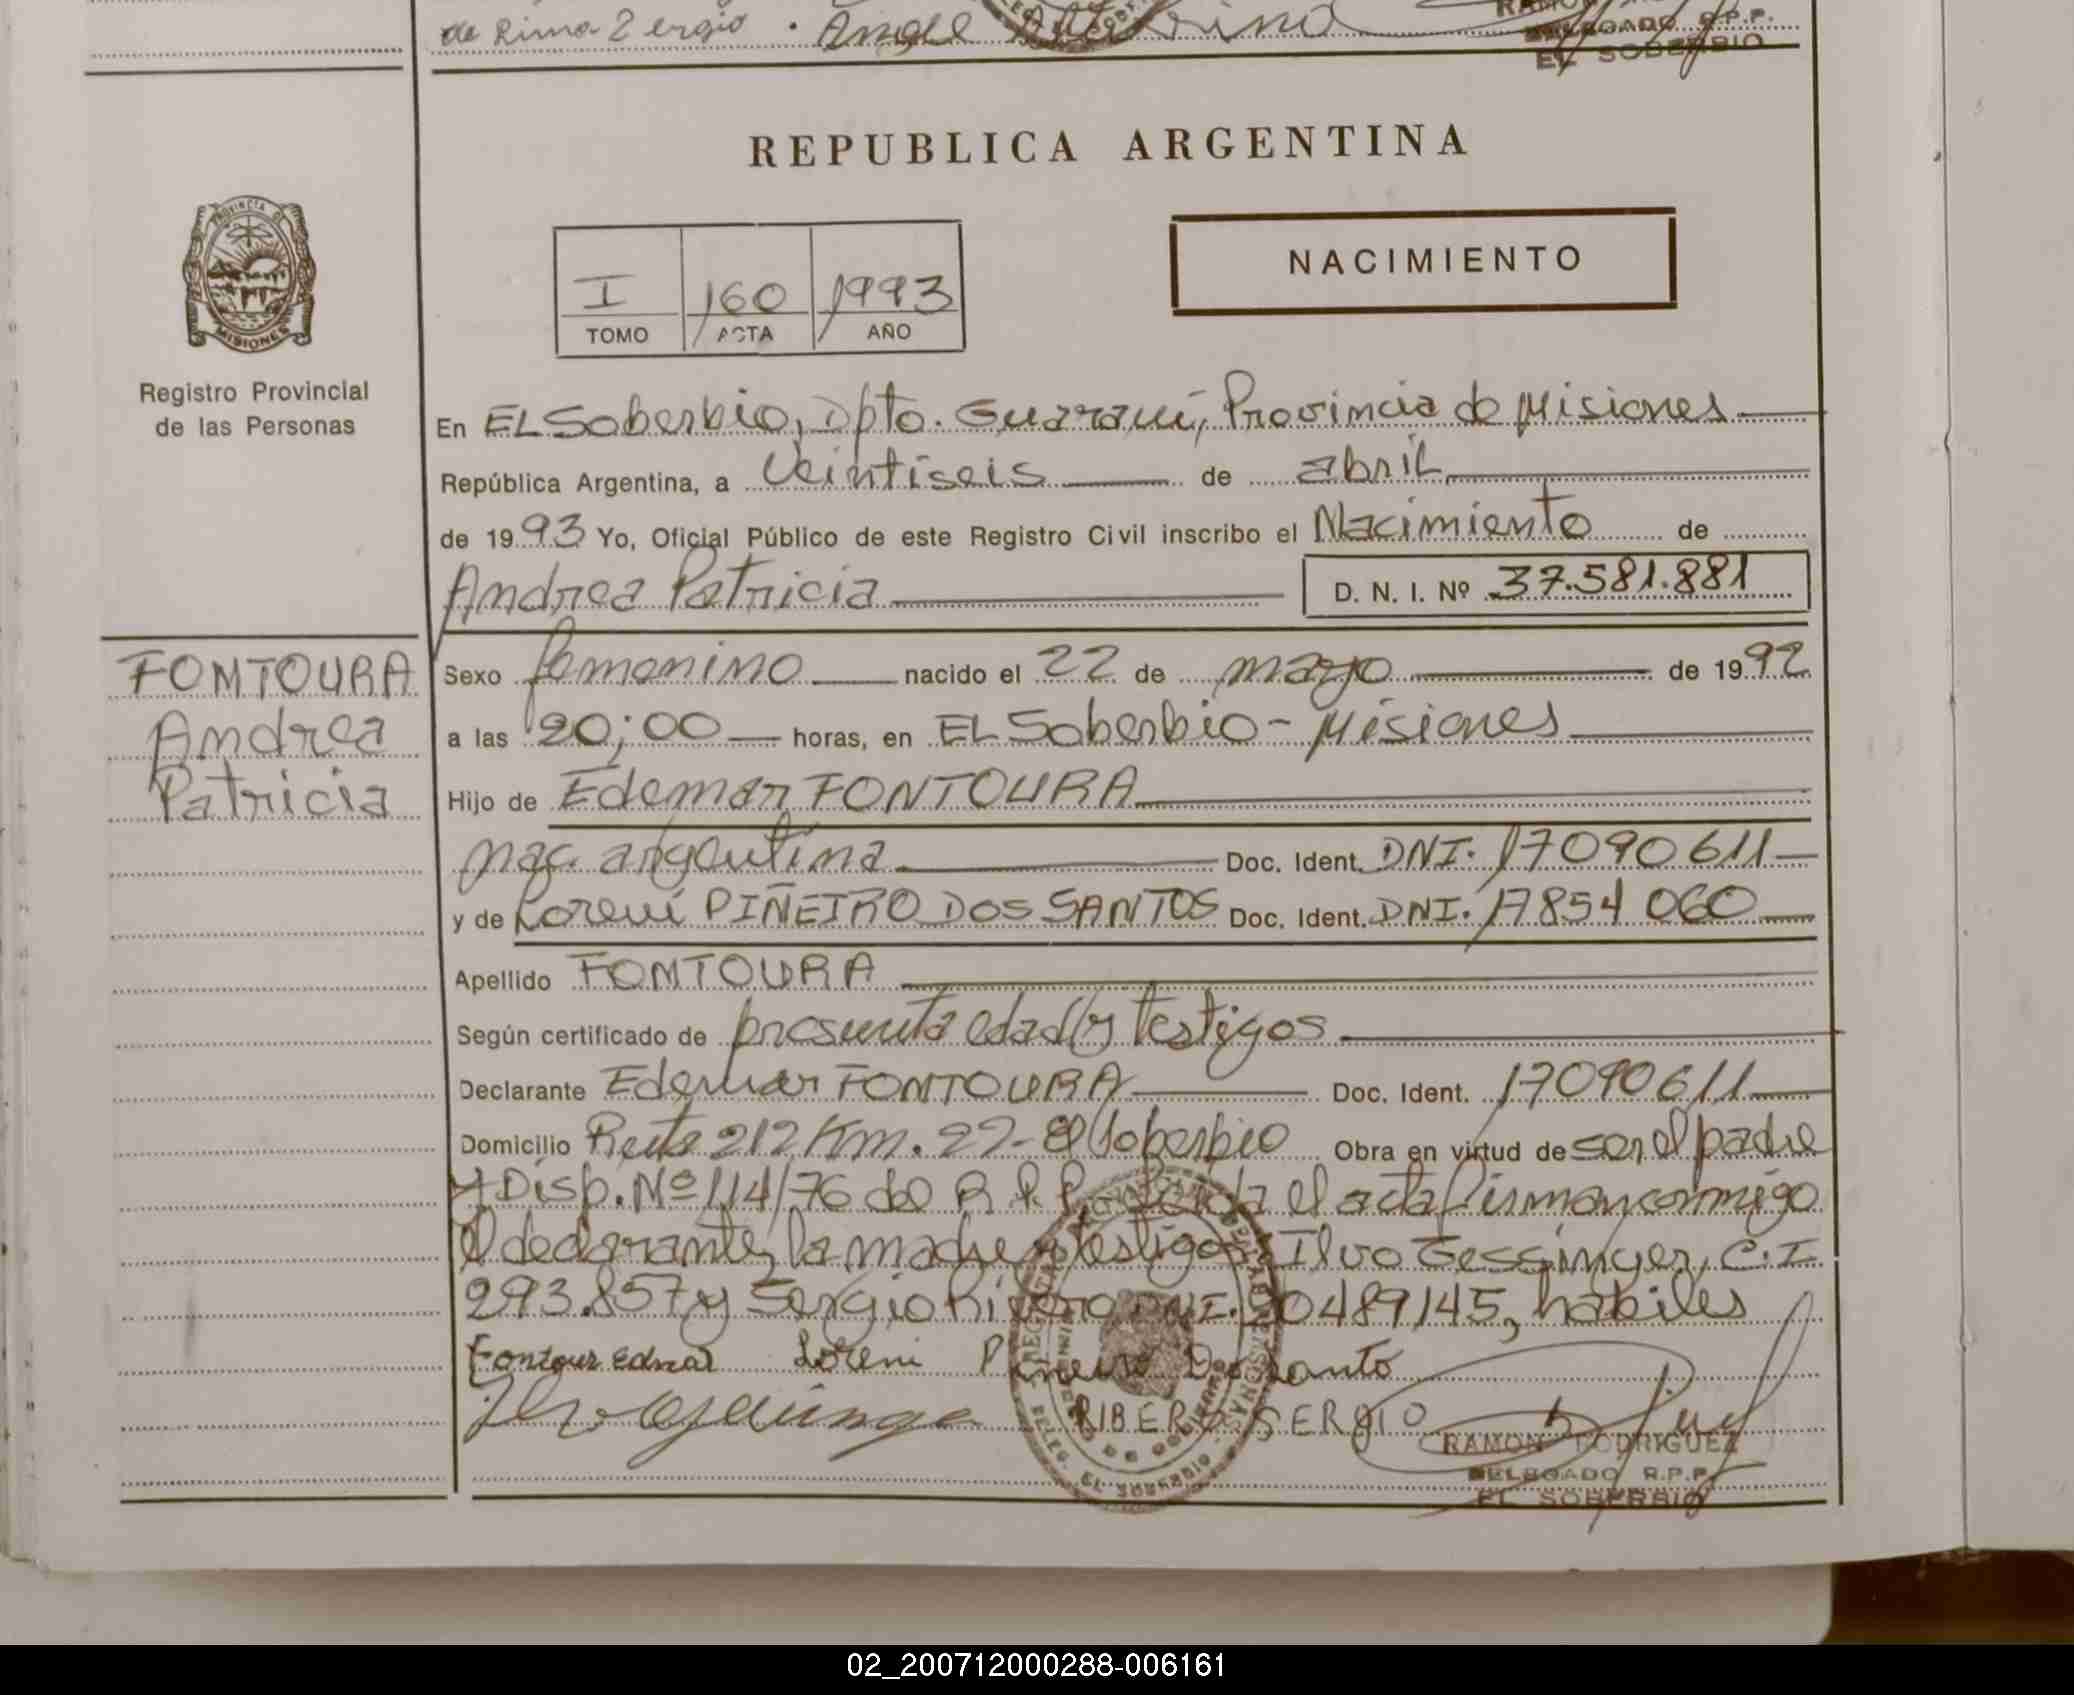 de Lima Sergio . Angel
DELEGADO R.P.P.
EL SOBERBIO
REPUBLICA ARGENTINA
NACIMIENTO
I 160 1993
TOMO ACTA AÑO
PROVINCIA DE MISIONES
Registro Provincial
de las Personas
En EL Soberbio, Dpto. Guaraní, Provincia de Misiones
República Argentina, a Veintiseis de abril
de 1993 Yo, Oficial Público de este Registro Civil inscribo el Nacimiento de
Andrea Patricia D. N. I. Nº 37.581.881
FOMTOURA
Andrea
Patricia
Sexo femenino nacido el 22 de mayo de 1992
a las 20;00 horas, en EL Soberbio - Misiones
Hijo de Edemar FONTOURA
nac. argentina Doc. Ident. DNI. 17090611
y de Lorení PIÑEIRO DOS SANTOS Doc. Ident. DNI. 17854060
Apellido FOMTOURA
Según certificado de presunta edad y testigos
Declarante Edemar FONTOURA Doc. Ident. 17090611
Domicilio Ruta 212 Km. 22 - El Soberbio Obra en virtud de ser el padre
y Disp. Nº 114/76 del R.P.P. leida el acta firman conmigo
el declarante, la madre y testigos Ilvo Gessinger, C.I.
293.857 y Sergio Rivero DNI. 20489145, habiles
Fontour Edmar Loreni Pineiro Do Santo
RIBERO SERGIO
RAMON RODRIGUEZ
DELEGADO R.P.P.
EL SOBERBIO
02_200712000288-006161